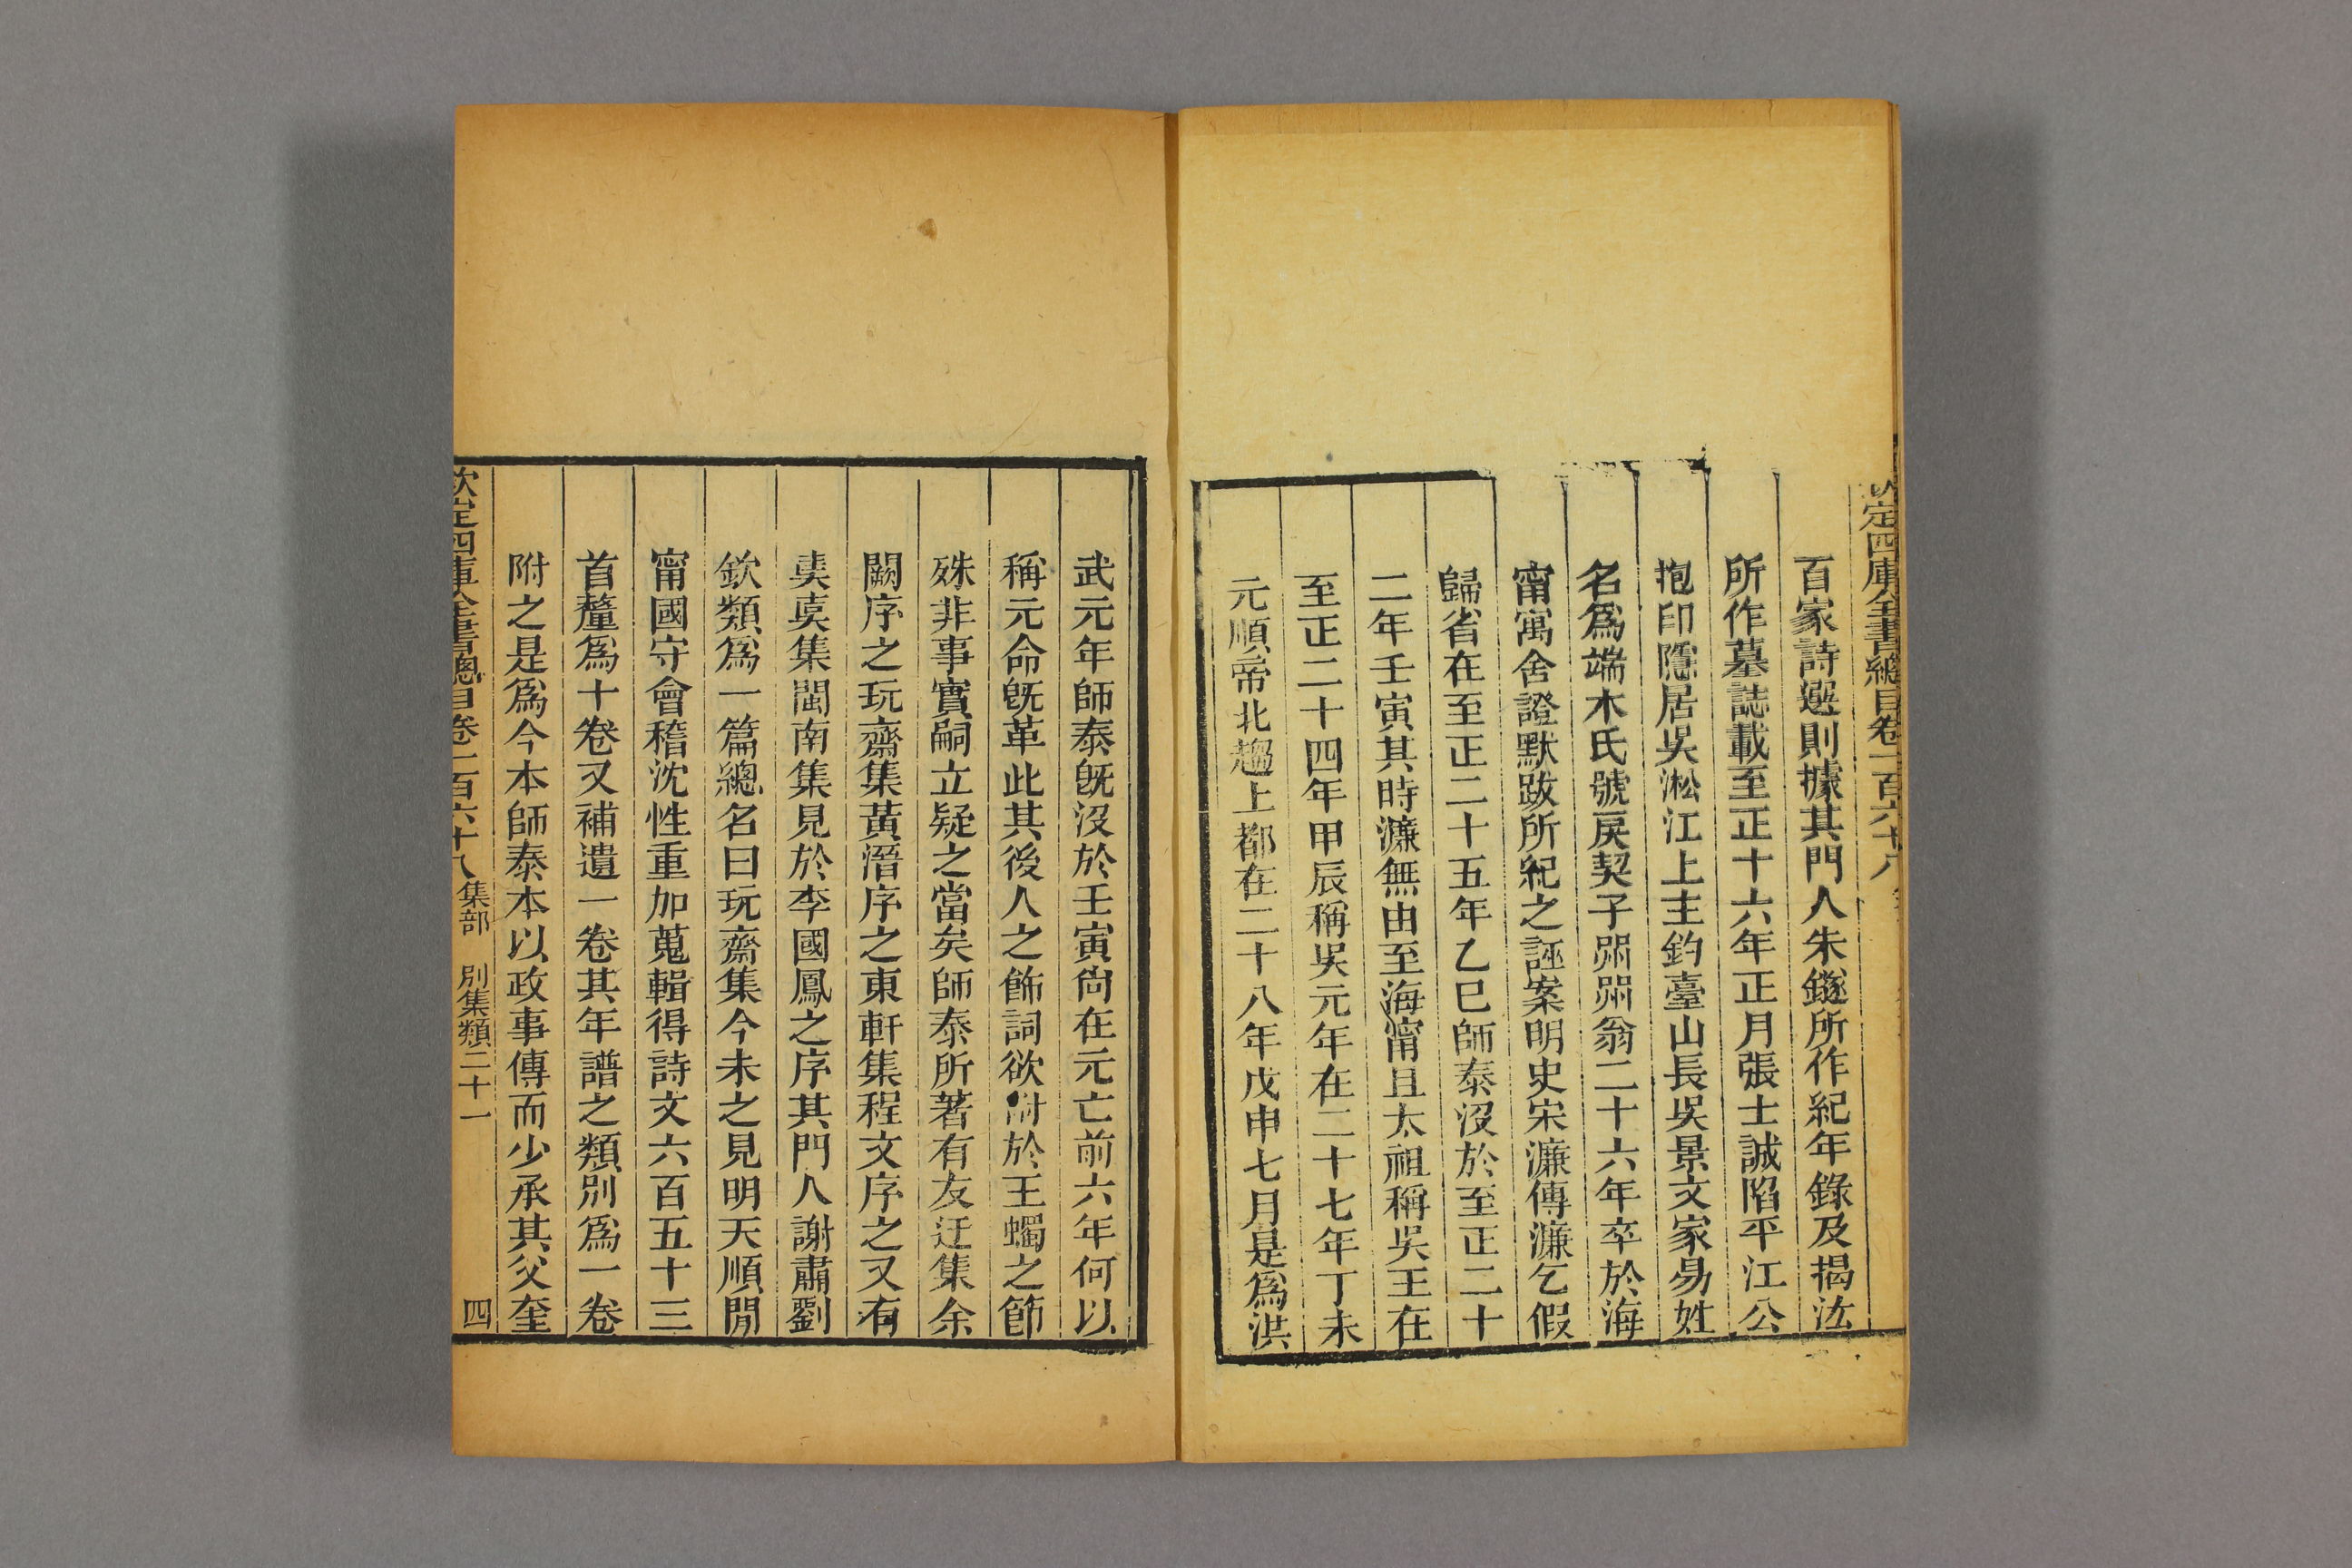 欽定四庫全書總目卷一百六十八
百家詩選則據其門人朱鐩所作紀年錄及揭汯
所作墓誌載至正十六年正月張士誠陷平江公
抱印隱居吳淞江上主釣臺山長吳景文家易姓
名爲端木氏號戻契子𦋅𦋅翁二十六年卒於海
甯寓舍證默跋所紀之誣案明史宋濂傳濂乞假
歸省在至正二十五年乙巳師泰沒於至正二十
二年壬寅其時濂無由至海甯且太祖稱吳王在
至正二十四年甲辰稱吳元年在二十七年丁未
元順帝北趨上都在二十八年戊申七月是爲洪
武元年師泰旣沒於壬寅尙在元亡前六年何以
稱元命旣革此其後人之飾詞欲附於王蠋之節
殊非事實嗣立疑之當矣師泰所著有友迂集余
闕序之玩齋集黃溍序之東軒集程文序之又有
㠭㠭集閩南集見於李國鳳之序其門人謝肅劉
欽類爲一篇總名曰玩齋集今未之見明天順閒
甯國守會稽沈性重加蒐輯得詩文六百五十三
首釐爲十卷又補遺一卷其年譜之類別爲一卷
附之是爲今本師泰本以政事傳而少承其父奎
欽定四庫全書總目卷一百六十八 集部 別集類二十一 四